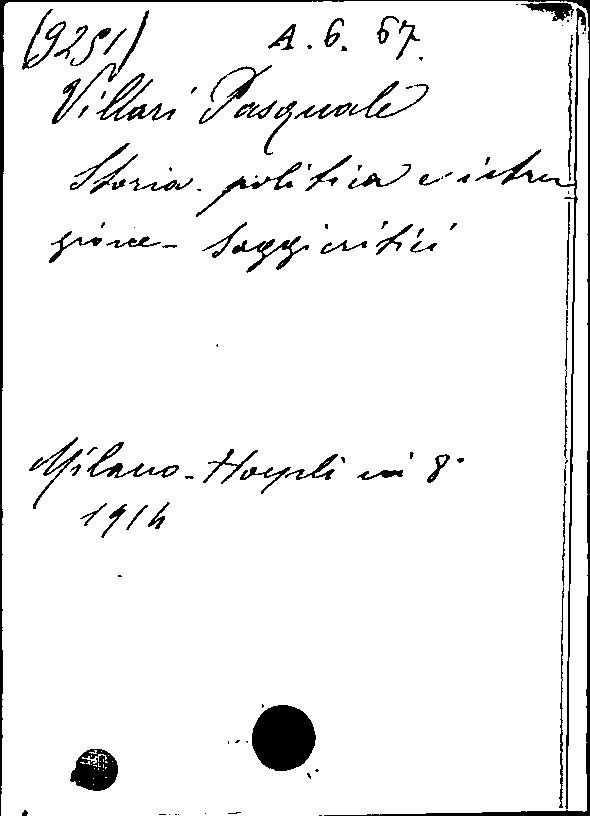 (9251) A. 6. 67.
Villari Pasquale
Storia. politica e istru
zione - Saggi critici
Milano - Hoepli in 8°
1914